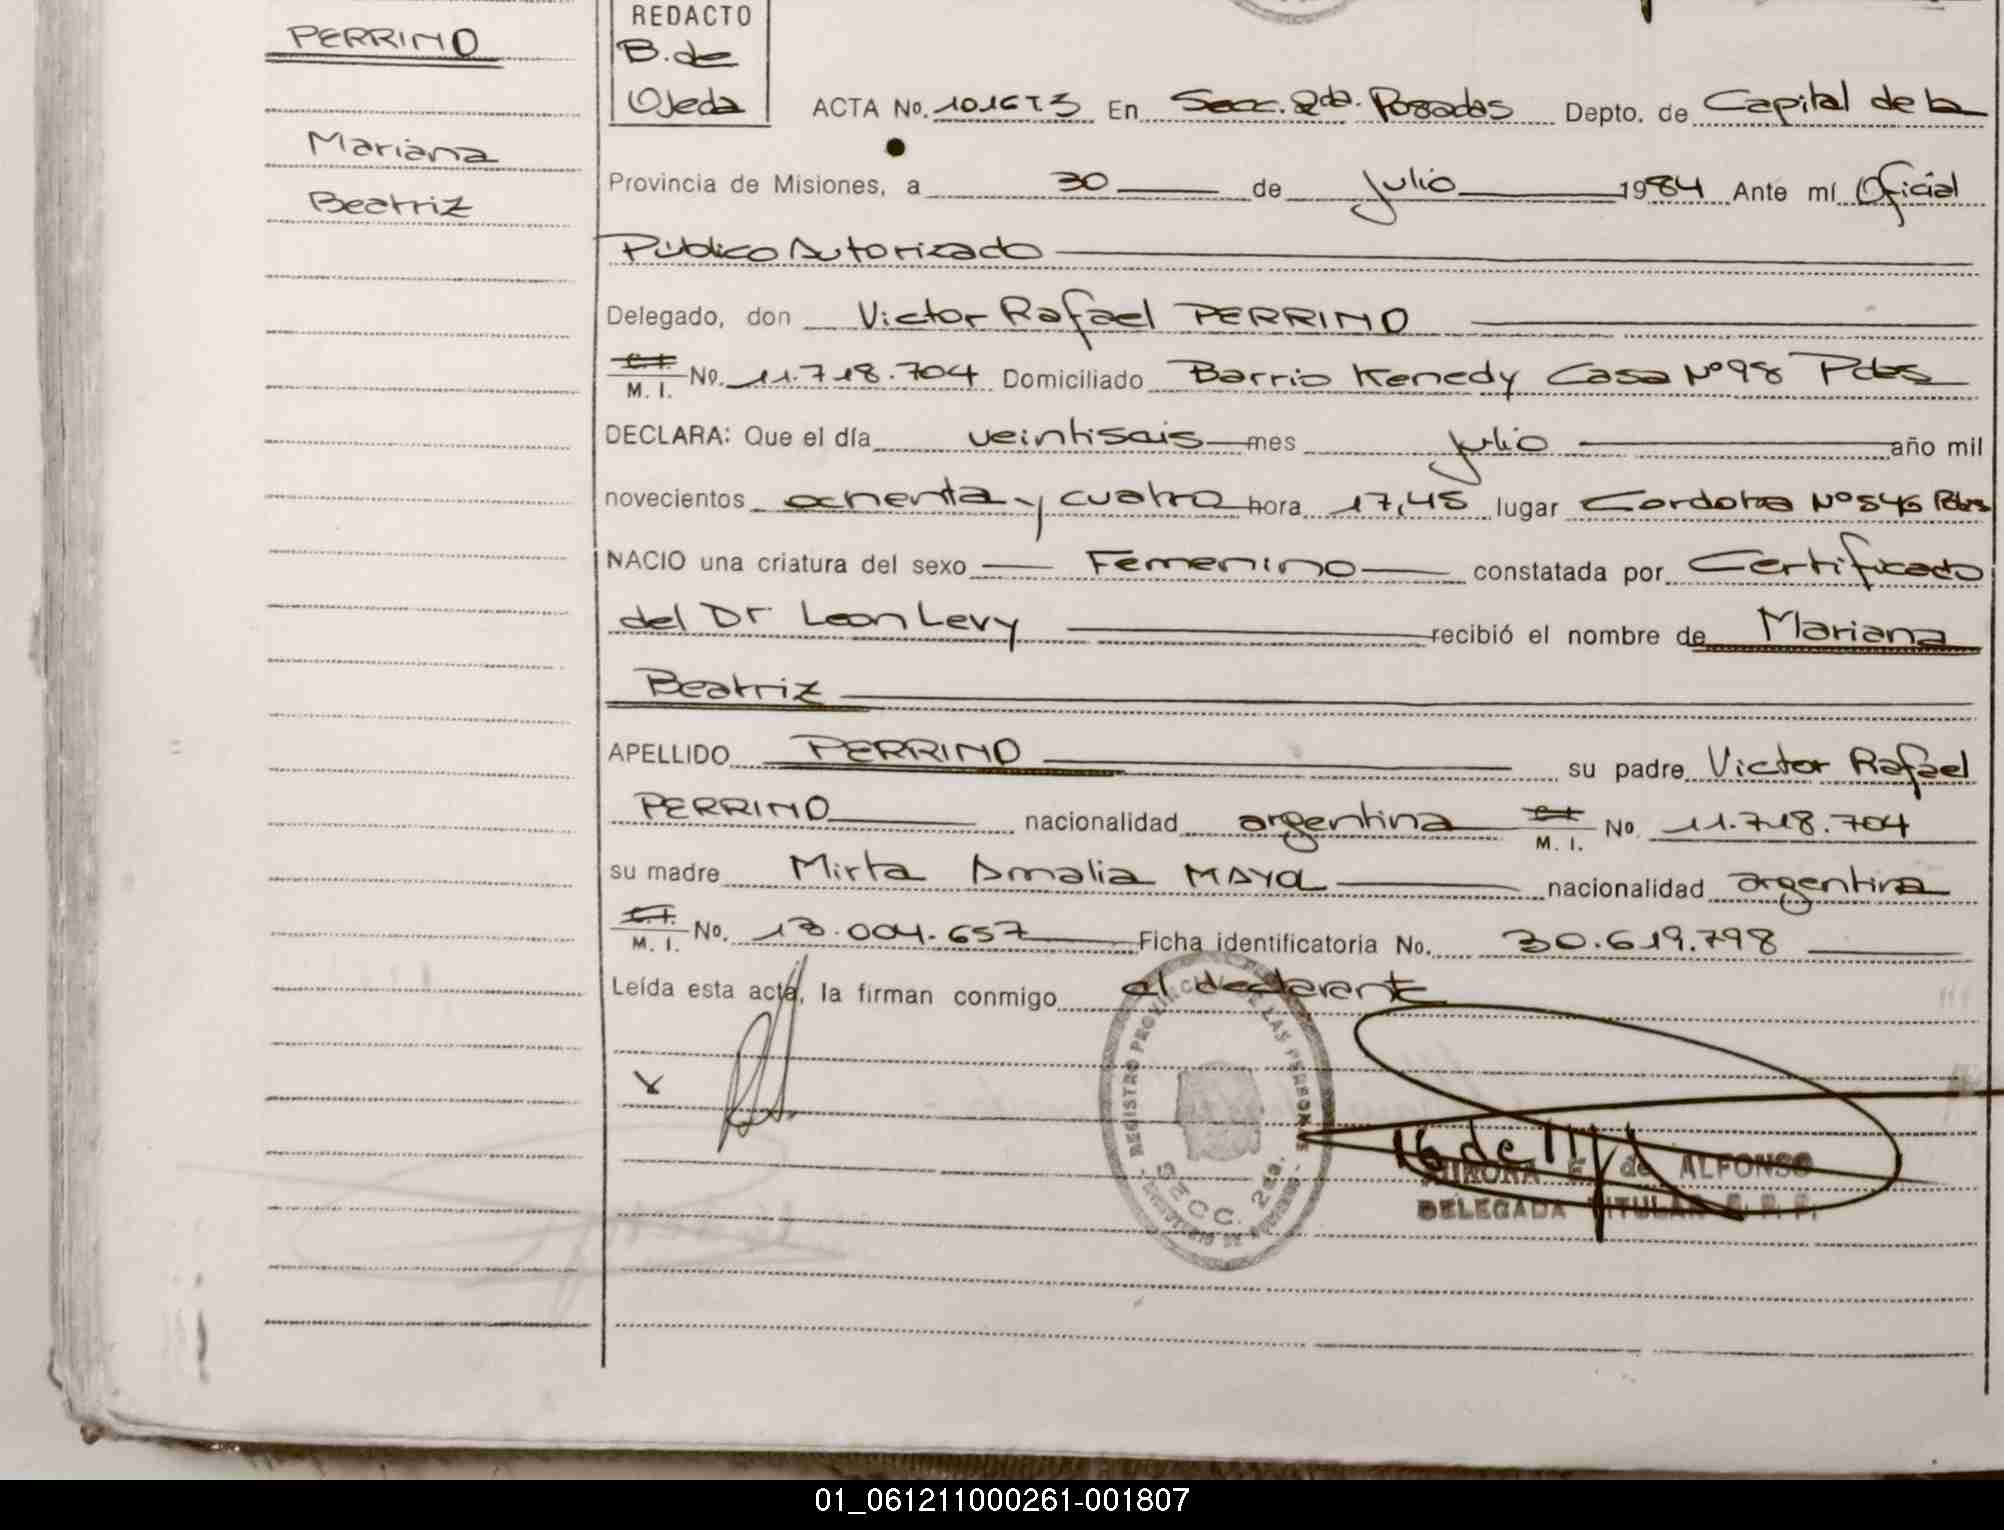 PERRINO
Mariana
Beatriz
REDACTO
B. de
Ojeda
ACTA No. 1016T3 En Secc. 2da. Posadas Depto. de Capital de la
Provincia de Misiones, a 30 de Julio 1984 Ante mí Oficial
Público Autorizado
Delegado, don Victor Rafael PERRINO
C.I.
M. I. No. 11.718.704 Domiciliado Barrio Kenedy Casa Nº 98 Pdas
DECLARA: Que el día veintiseis mes Julio año mil
novecientos ochenta y cuatro hora 17,45 lugar Cordoba Nº 545 Pdas
NACIO una criatura del sexo Femenino constatada por Certificado
del Dr Leon Levy recibió el nombre de Mariana
Beatriz
APELLIDO PERRINO su padre Victor Rafael
PERRINO nacionalidad argentina C.I. M. I. No. 11.718.704
su madre Mirta Amalia MAYOL nacionalidad argentina
C.I.
M. I. No. 13.004.657 Ficha identificatoria No. 30.619.798
Leída esta acta, la firman conmigo el declarante
REGISTRO PROVINCIAL DE LAS PERSONAS
SECC. 2da.
E. de ALFONSO
DELEGADA TITULAR
01_061211000261-001807